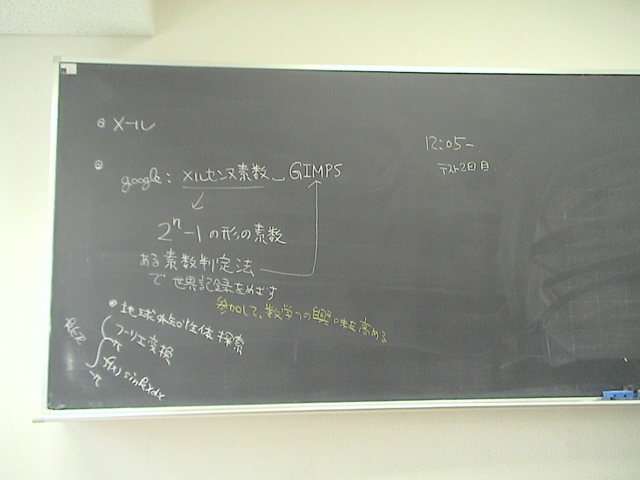 メール
google: メルセンヌ素数 GIMPS
2^n-1の形の素数
ある素数判定法
で世界記録をめざす
参加して、数学への興味を高める
地球外知的生体探索
フーリエ変換
k∈Z
∫_{-π}^{π} f(x) sin kx dx
12:05-
テスト2回目